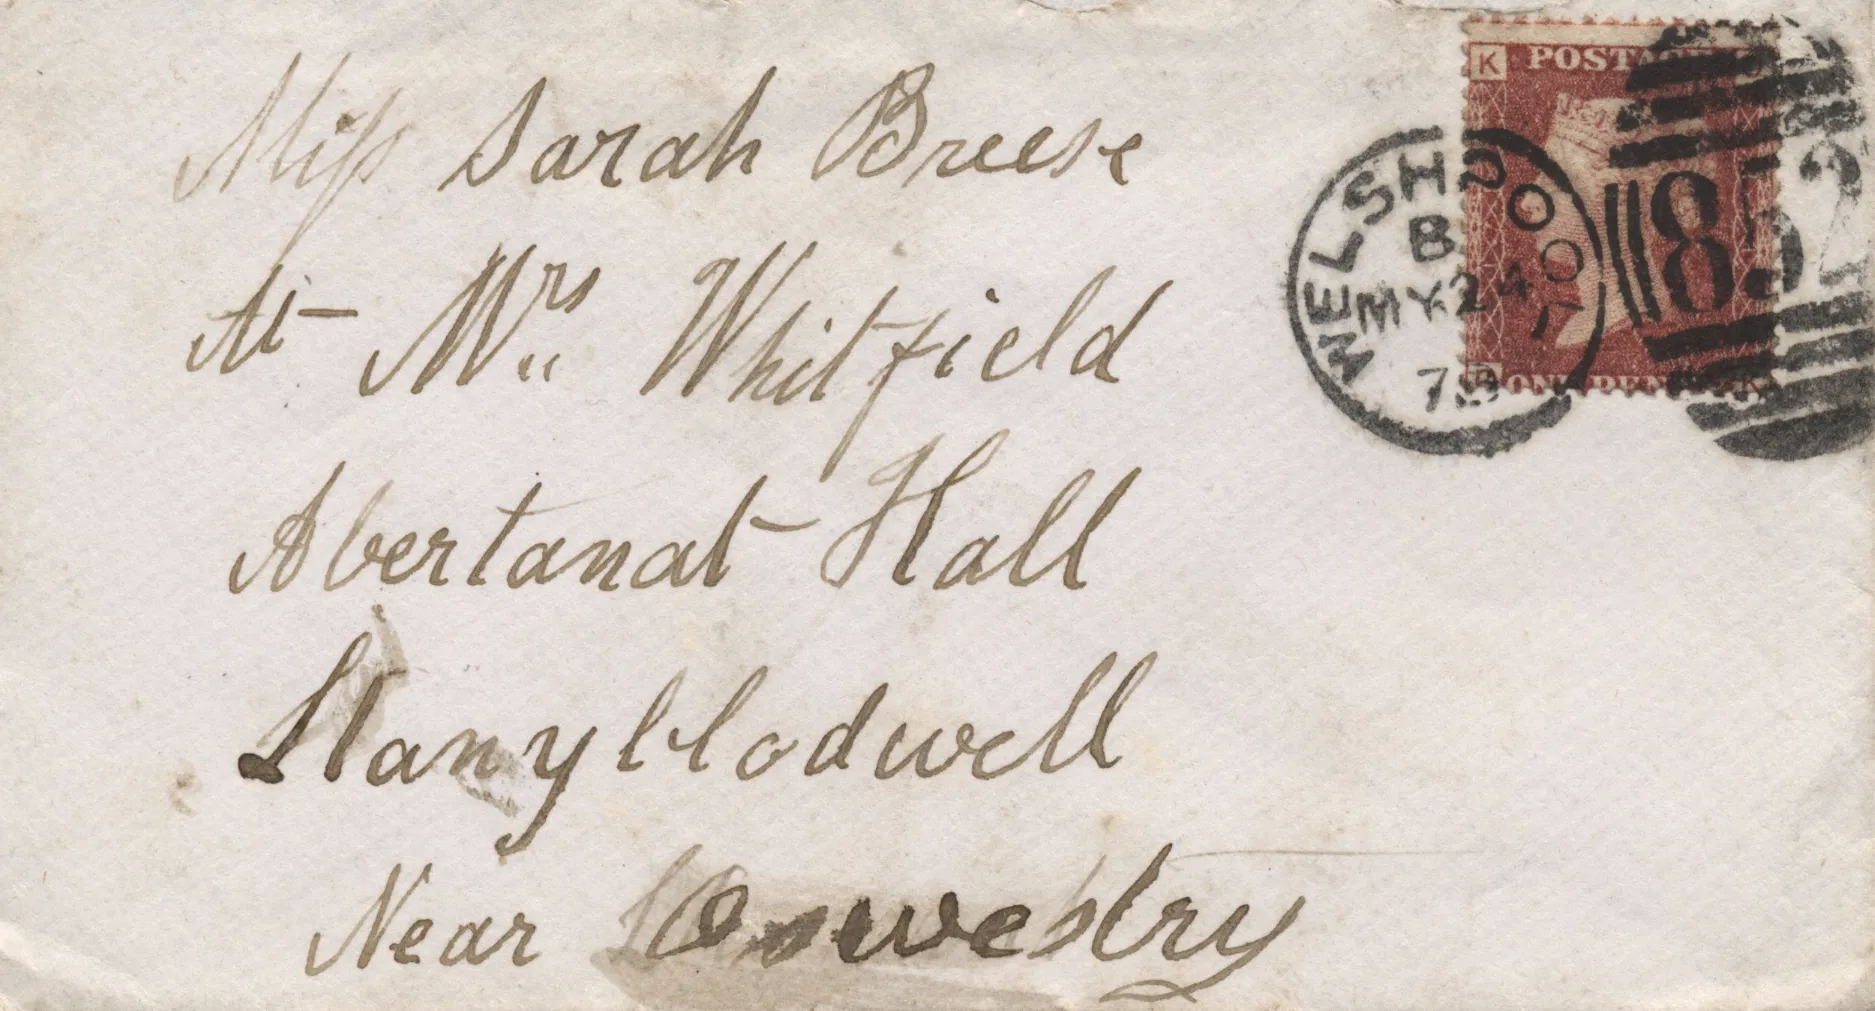 Miss Sarah Breese
At Mrs Whitfield
Abertanat Hall
Llanyllodwell
Near Oswestry
K POSTAGE
WELSHPOOL
B
MY 24
852
ONE PENNY K